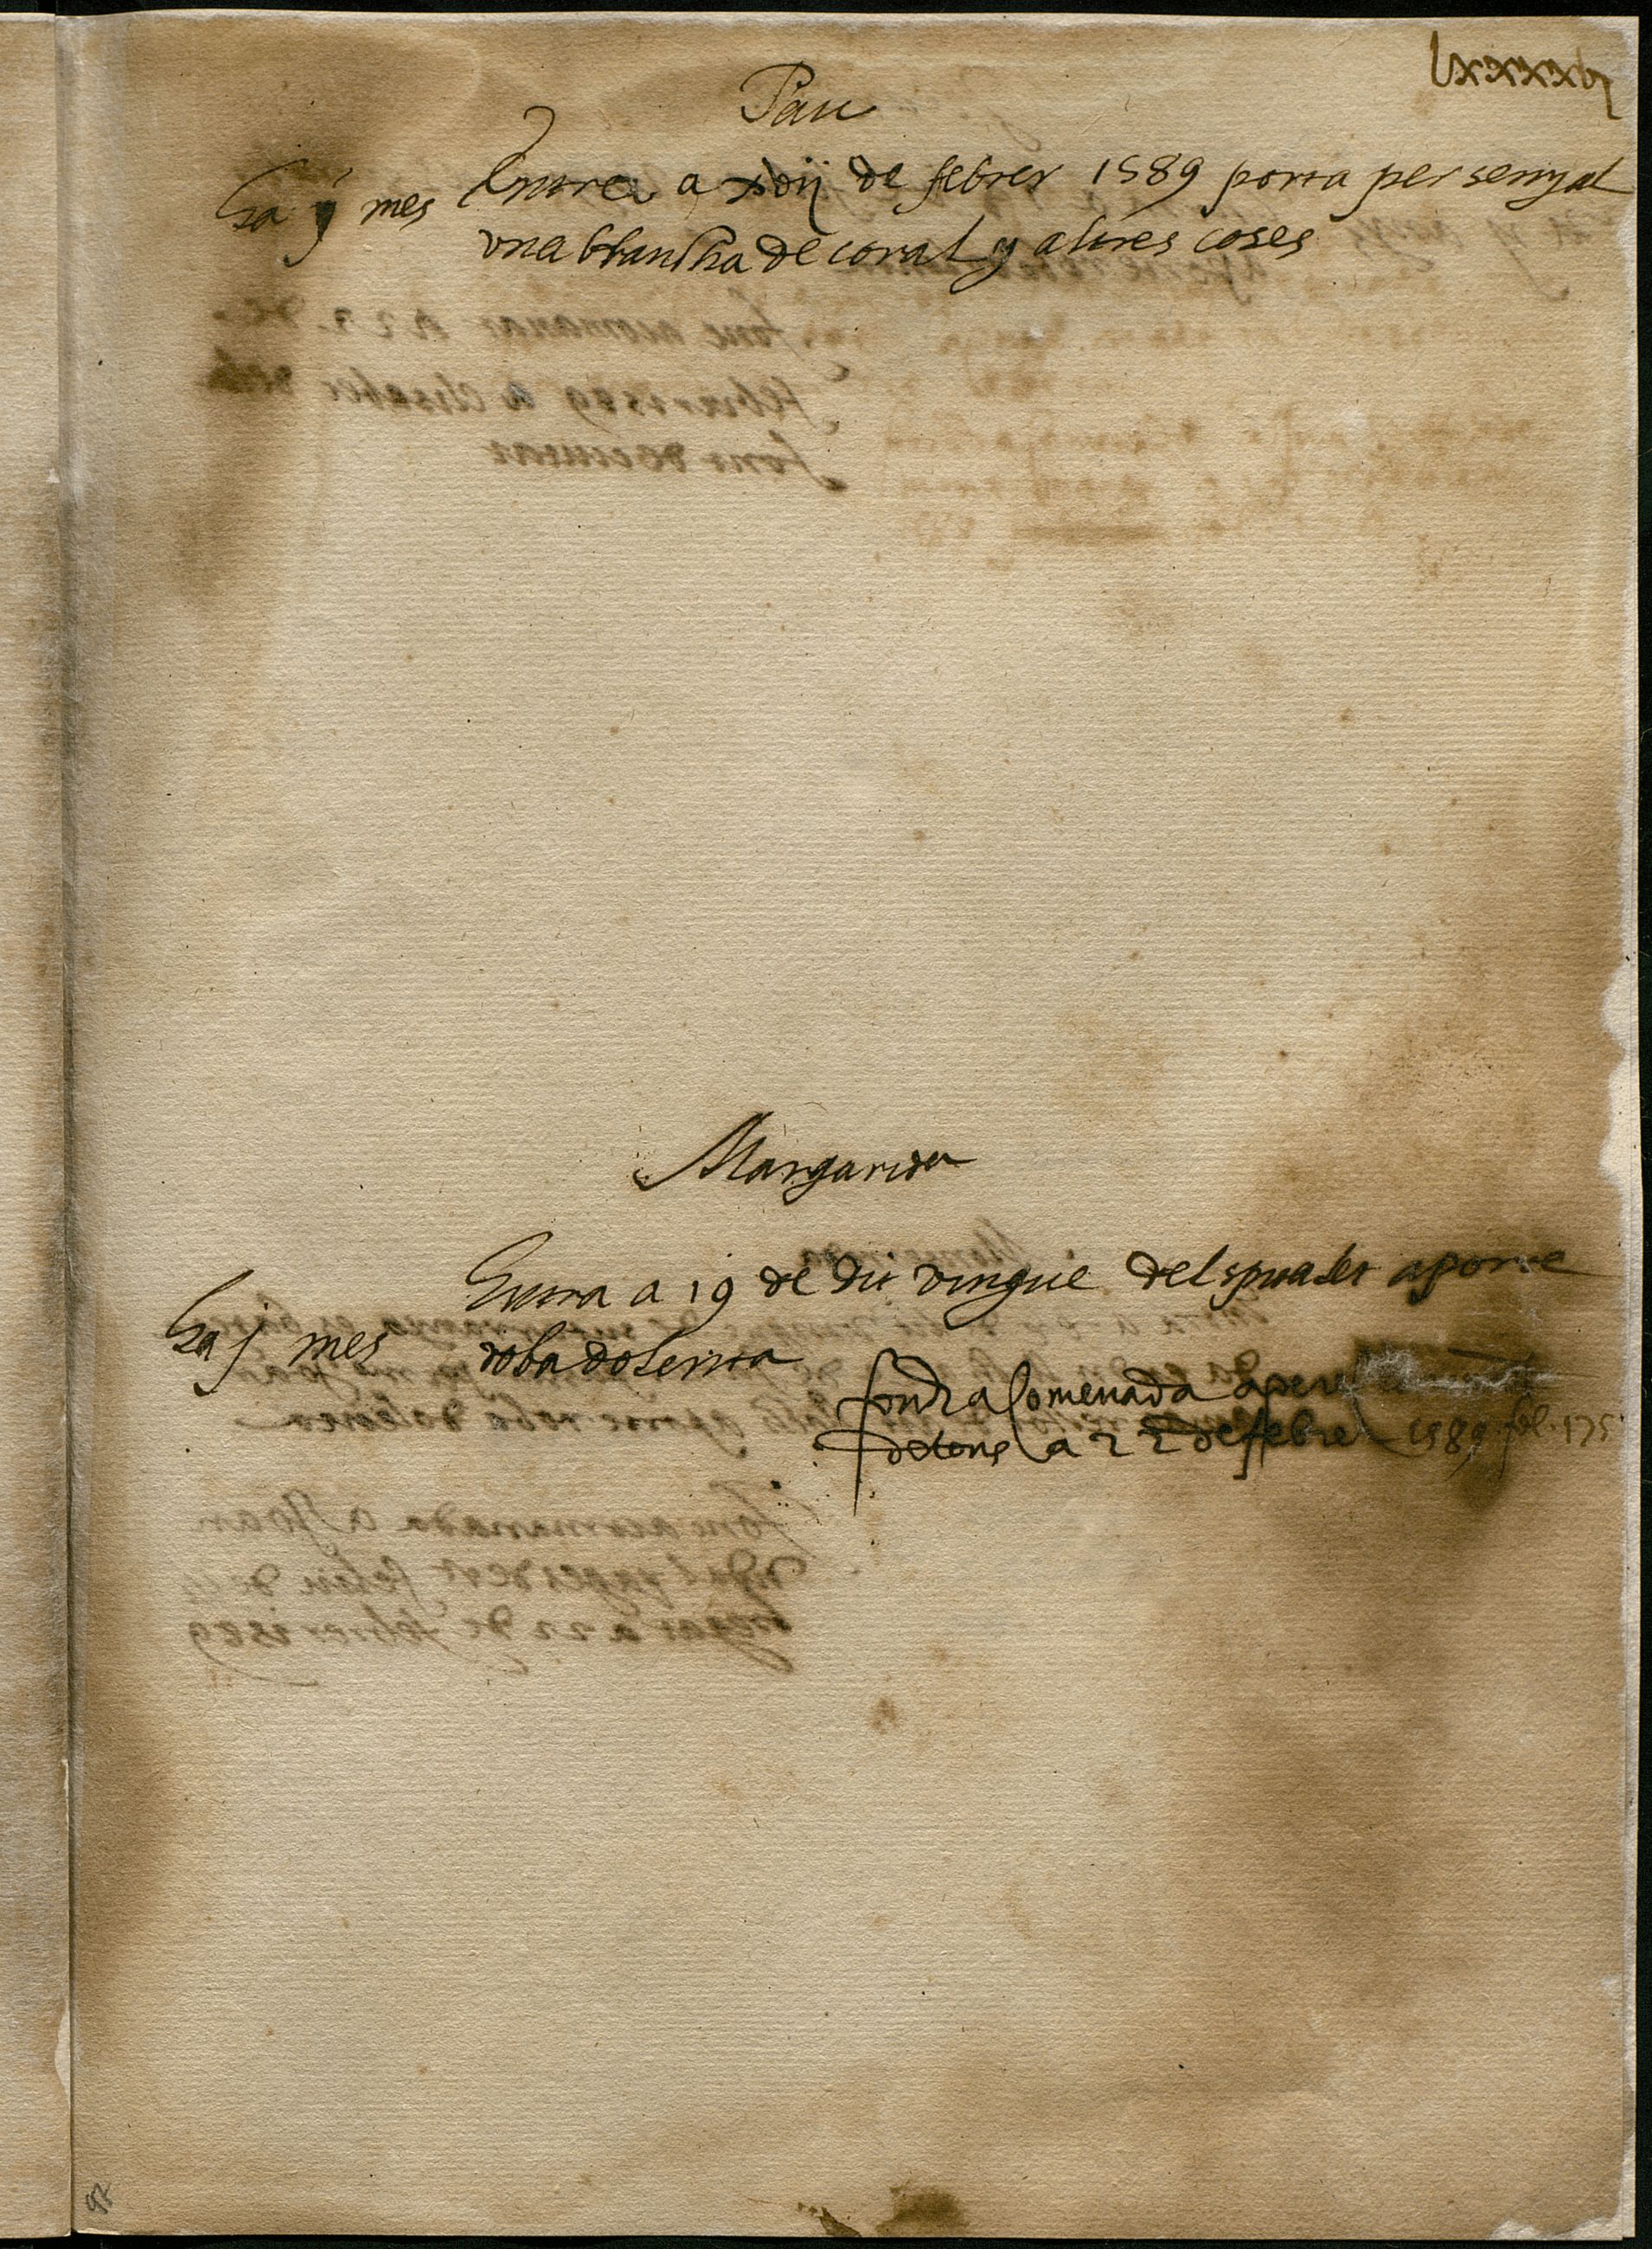 lxxxxvj
Pau
ha ij mes
Entra a xviij de febrer 1589 porta per senyal
una branscha de coral y altres coses
Margarida
Entra a 19 de dit vingue del spitalet aporte
ha j mes
roba dolenta
fonch acomenada a pere
detens a 22 de febrer 1589 fol. 175